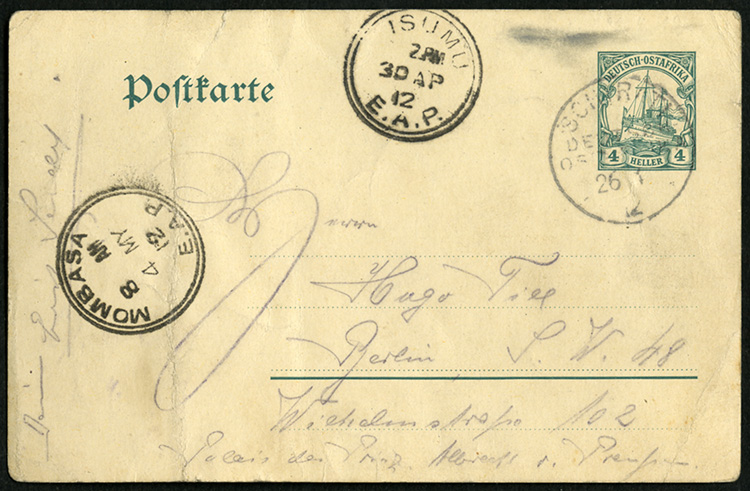 Postkarte
ISUMU
2.PM
30 AP
12
E.A.P.
DEUTSCH-OSTAFRIKA
4 HELLER 4
26
12
MOMBASA
8 AM
4 MY
12
E.A.P.
Herrn
Hugo Till
Berlin S.W. 48
Wilhelmstraße 102
Palais des Prinz. Albrecht v. Preußen